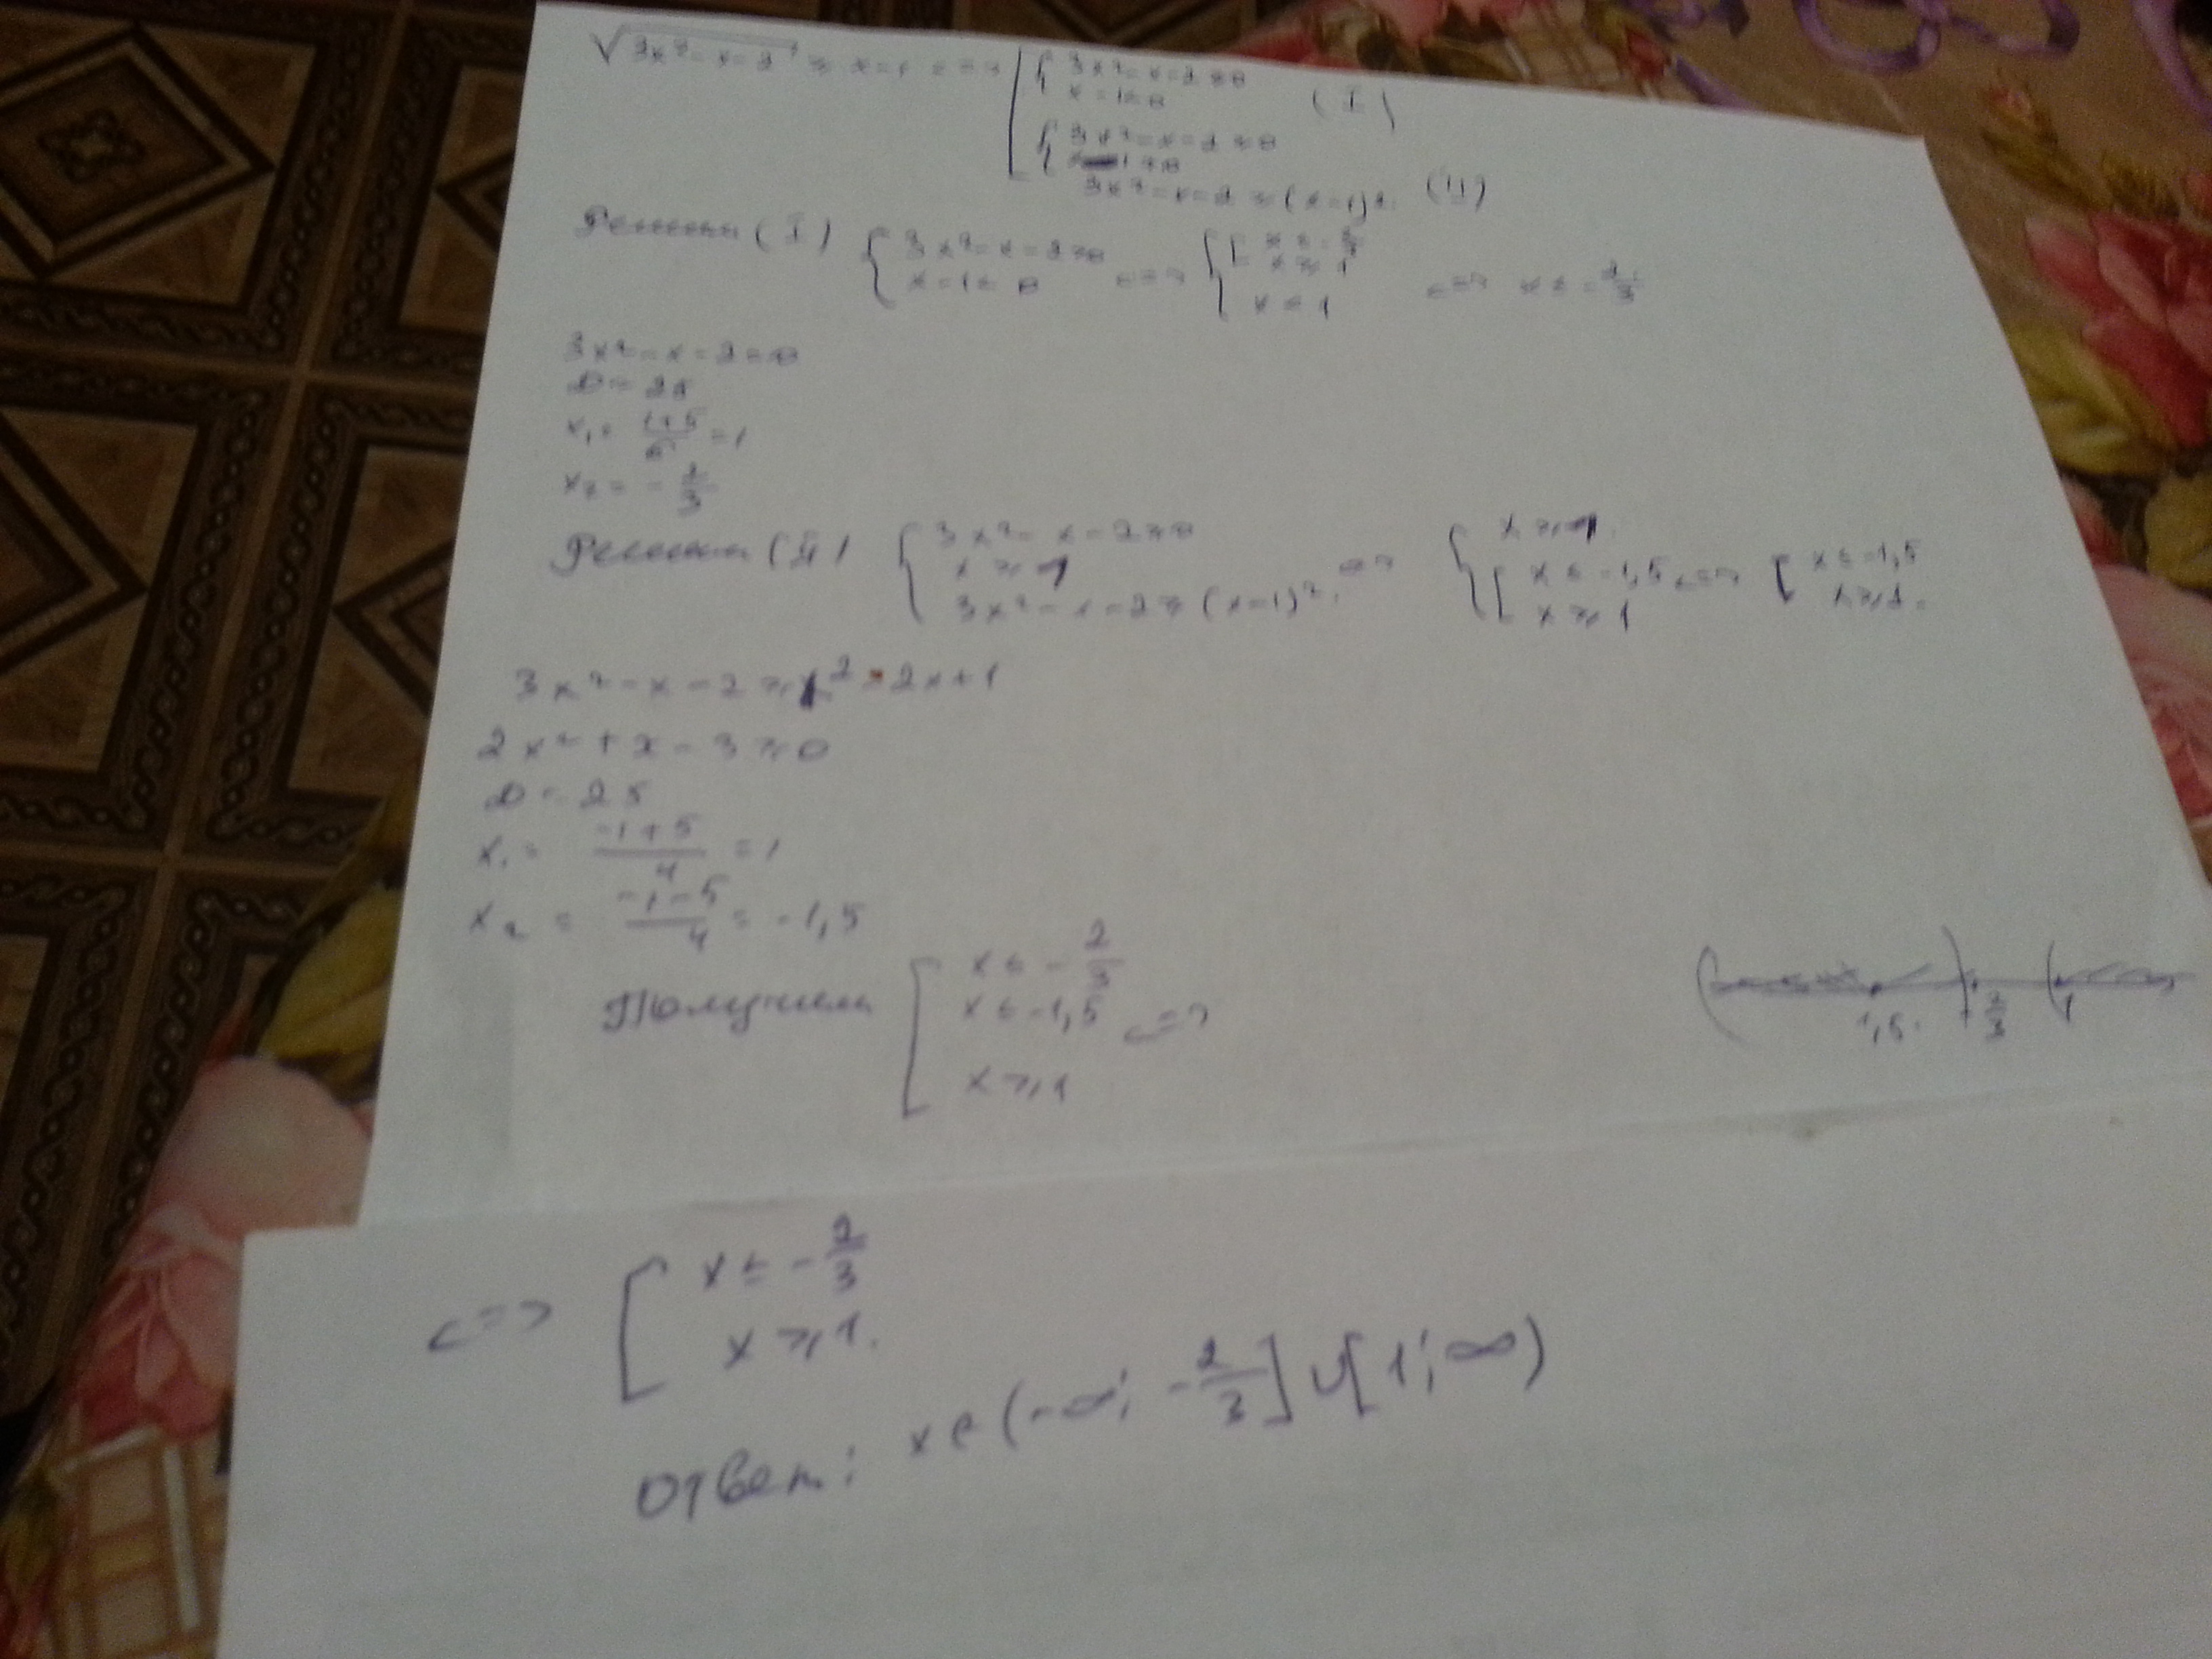 √(3x² - x - 2) ≥ x - 1 <=> [ { 3x² - x - 2 ≥ 0
x - 1 ≤ 0 (I)
{ 3x² - x - 2 ≥ 0
x - 1 ≥ 0
3x² - x - 2 ≥ (x - 1)². (II)
Решим (I) { 3x² - x - 2 ≥ 0 <=> { [ x ≤ -2/3 <=> x ≤ -2/3
x - 1 ≤ 0 x ≥ 1
x ≤ 1
3x² - x - 2 = 0
D = 25
x₁ = (1+5)/6 = 1
x₂ = -2/3
Решим (II) { 3x² - x - 2 ≥ 0 x ≥ 1
x ≥ 1 => { [ x ≤ -1,5 <=> [ x ≤ -1,5
3x² - x - 2 ≥ (x-1)². x ≥ 1 x ≥ 1.
3x² - x - 2 ≥ x² - 2x + 1
2x² + x - 3 ≥ 0
D = 25
x₁ = (-1+5)/4 = 1
x₂ = (-1-5)/4 = -1,5
Получим [ x ≤ -2/3
x ≤ -1,5 <=>
x ≥ 1
<=> [ x ≤ -2/3
x ≥ 1.
Ответ: x ∈ (-∞; -2/3] ∪ [1; ∞)